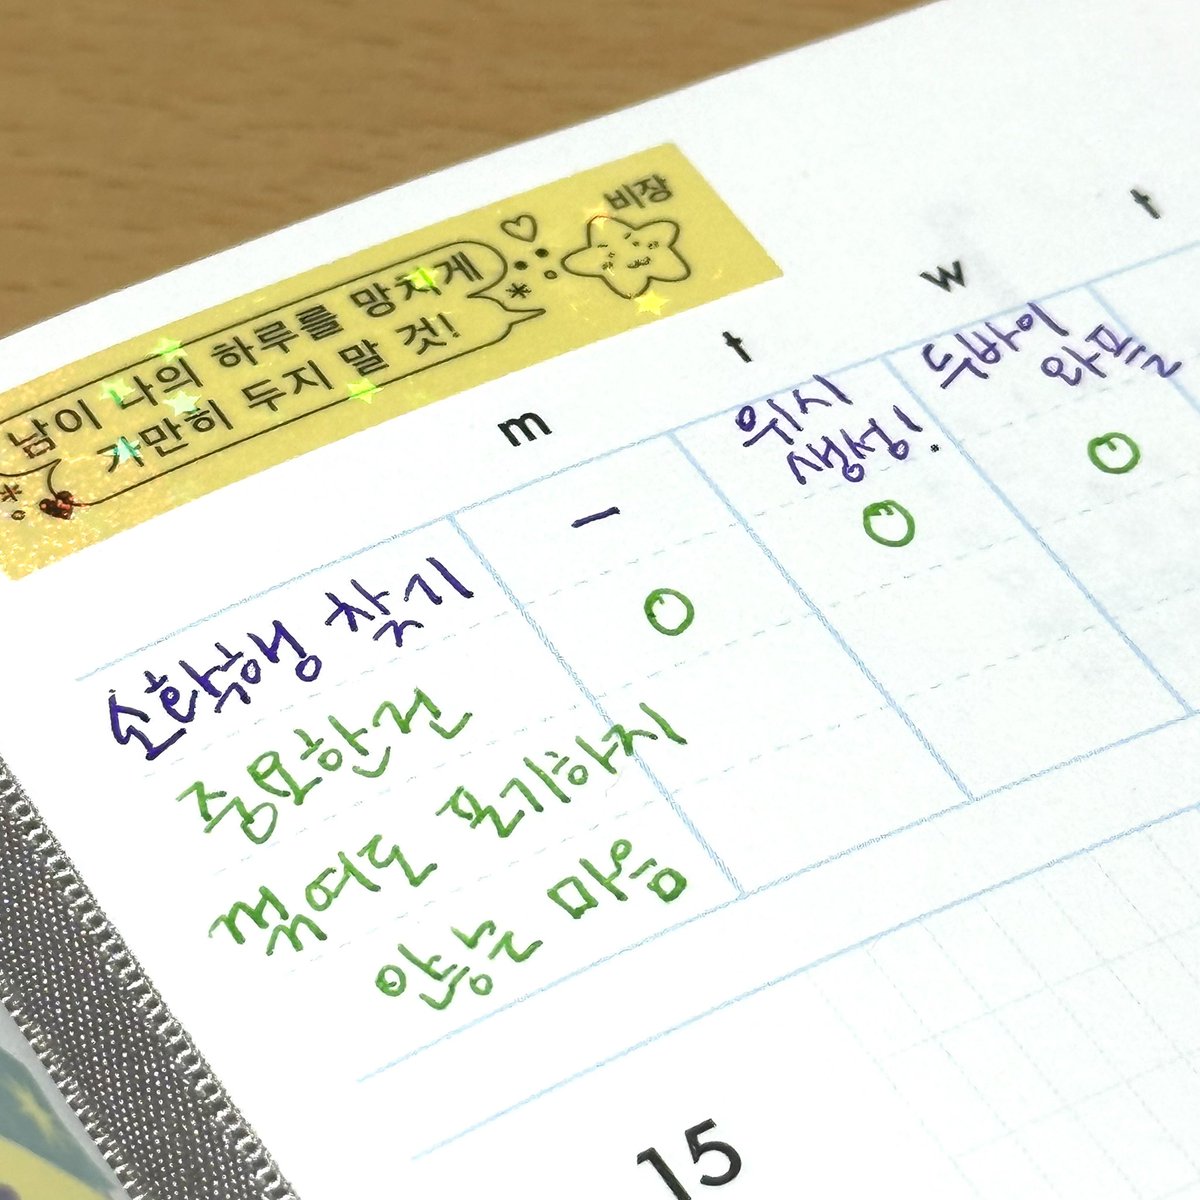 비장
남이 나의 하루를 망치게
가만히 두지 말 것!
m t w t
소확행 찾기
—
위시
생성!
두바이
와플
중요한건
꺾여도 포기하지
않는 마음
15